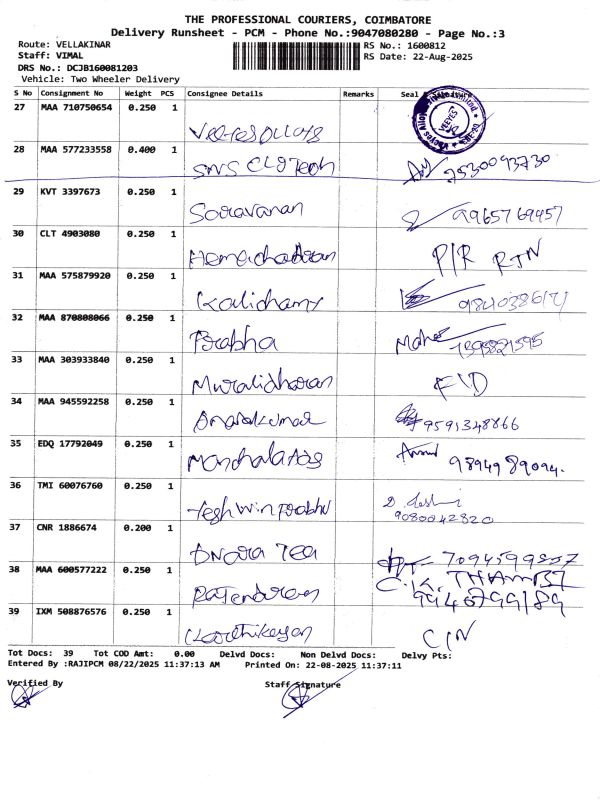 THE PROFESSIONAL COURIERS, COIMBATORE
Delivery Runsheet - PCM - Phone No.:9047080280 - Page No.:3
Route: VELLAKINAR
RS No.: 1600812
Staff: VIMAL
RS Date: 22-Aug-2025
DRS No.: DCJB160081203
Vehicle: Two Wheeler Delivery
S No Consignment No Weight PCS Consignee Details Remarks Seal & Signature
27 MAA 710750654 0.250 1
28 MAA 577233558 0.400 1 SNS CLG Tech 7530093730
29 KVT 3397673 0.250 1 Saravanan 9965769457
30 CLT 4903080 0.250 1 Hemachandran P/R RTN
31 MAA 575879920 0.250 1 Kalichamy
32 MAA 870808066 0.250 1 Prabha
33 MAA 303933840 0.250 1 Muralidharan
34 MAA 945592258 0.250 1 Anandkumar 9591348866
35 EDQ 17792049 0.250 1 9894989094.
36 TMI 60076760 0.250 1 Yeshwin Prabhu 9080042820
37 CNR 1886674 0.200 1 7094599857
38 MAA 600577222 0.250 1 Rajendran C.K. THAMBI 9940799189
39 IXM 508876576 0.250 1 Karthikeyan C/N
Tot Docs: 39 Tot COD Amt: 0.00 Delvd Docs: Non Delvd Docs: Delvy Pts:
Entered By :RAJIPCM 08/22/2025 11:37:13 AM Printed On: 22-08-2025 11:37:11
Verified By Staff Signature